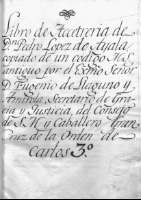 Libro de Acetreria de
Dn. Pedro Lopez de Ayala
copiado de un codigo M.S.
antiguo por el Exmo Señor
D. Eugenio de Llaguno y
Amirola, Secretario de Gra-
cia y Justicia, del Consejo
de S.M. y Caballero Gran
Cruz de la Orden de
Carlos 3.º